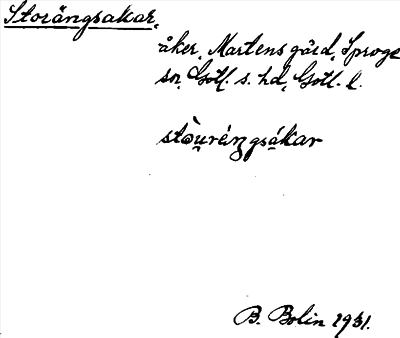 Storängsakar,
åker, Martens gård, Sproge
sn, Gotl. s. hd, Gotl. l.
stòu̯réŋgsákar
B. Bolin 1931.